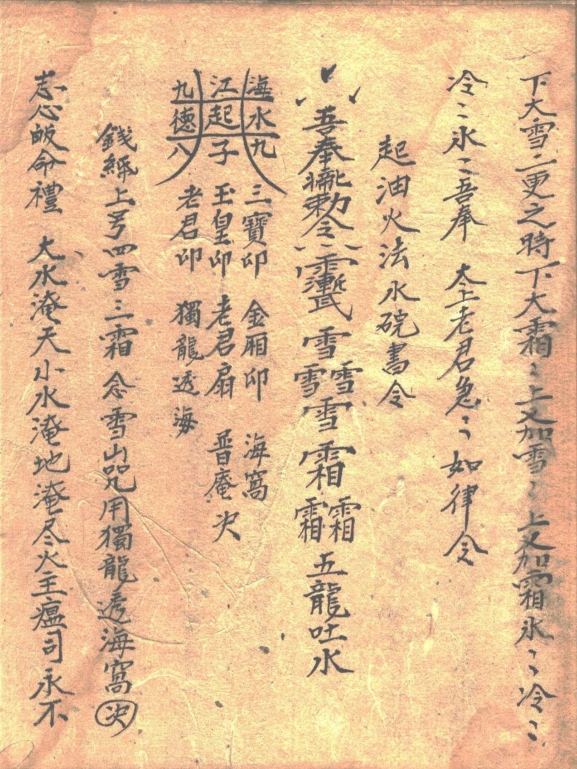 下大雪二更之時下大霜〻上又加雪〻上又加霜氷〻冷〻
冷〻氷〻吾奉 太上老君急〻如律令
起油火法水碗書令
吾奉 勅令 雪雪雪雪霜霜霜五龍吐水
海水九 三寶印 金厢印 海窩
江起子 玉皇印 老君扇 普庵決
九德八 老君印 獨龍透海
錢紙上芎四雪三霜 念雪山咒用獨龍透海窩決
志心皈命禮 大水淹天小水淹地淹尽火王瘟司永不